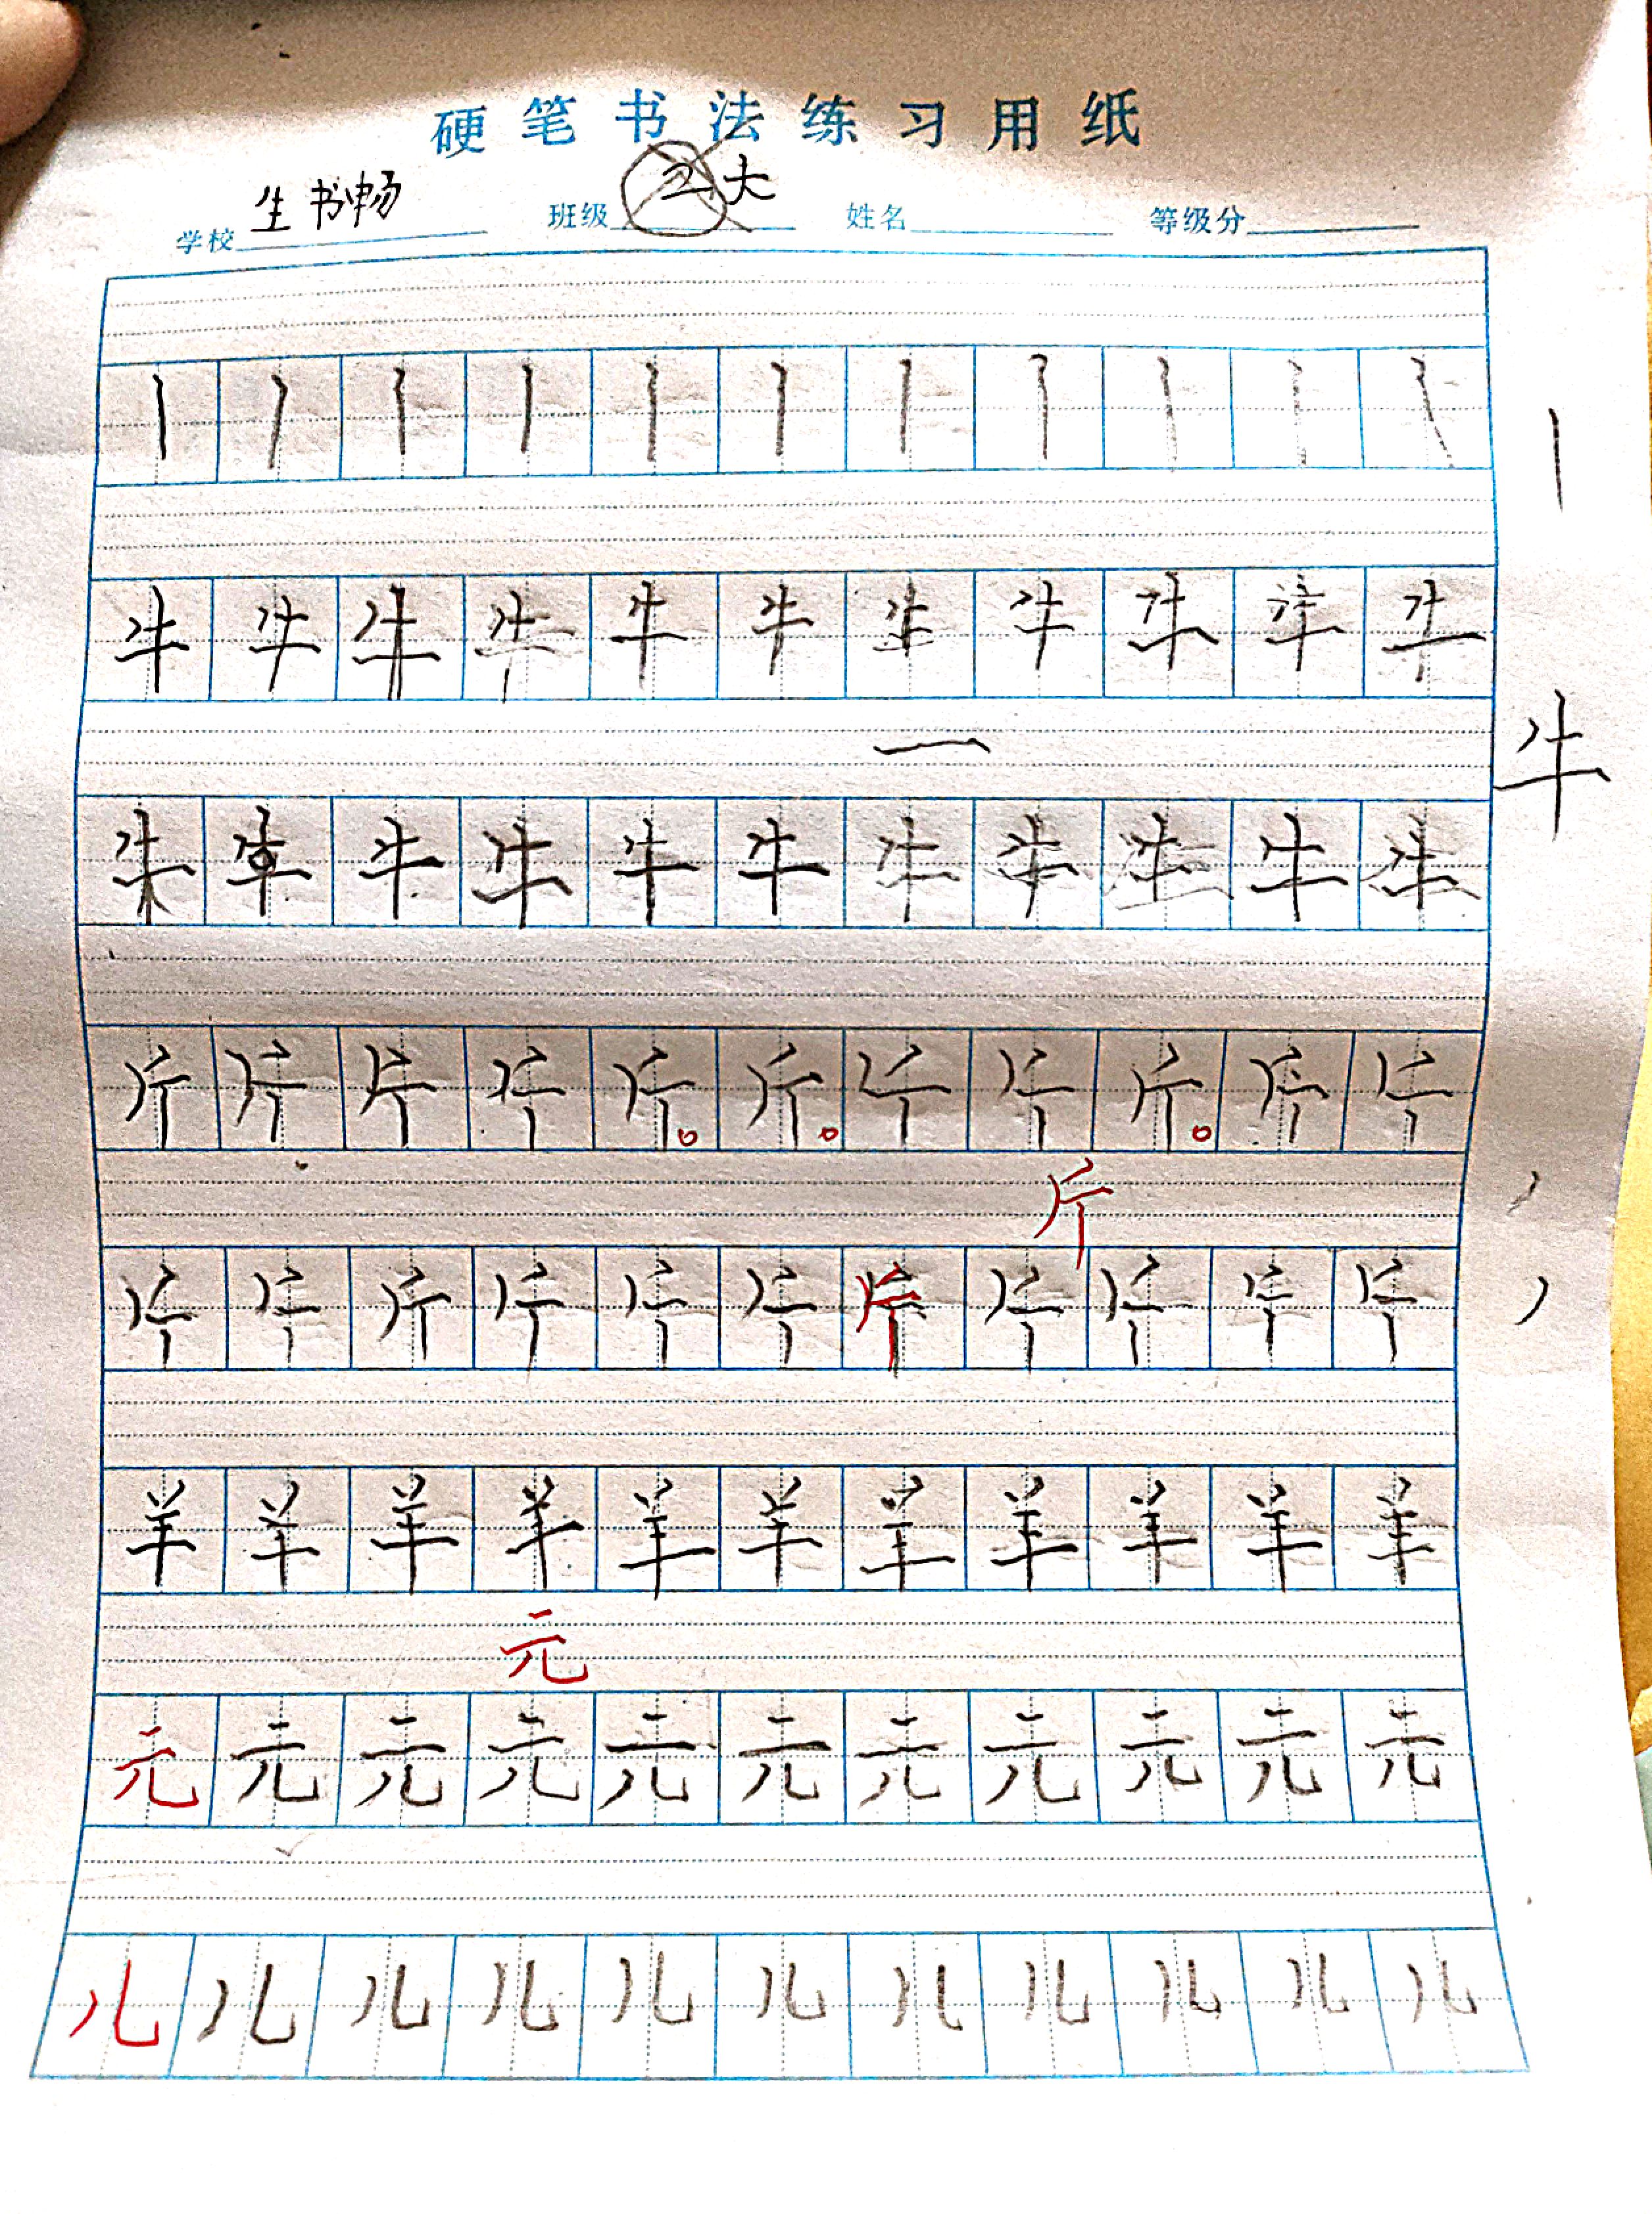 硬笔书法练习用纸
学校 生书畅 班级 大 姓名 等级分
丨丨丨丨丨丨丨丨丨丨丨 丨
牛牛牛牛牛牛牛牛牛牛牛
一 牛
牛牛牛牛牛牛牛牛牛牛牛
斤斤斤斤斤斤斤斤斤斤斤
斤
斤斤斤斤斤斤斤斤斤斤斤
羊羊羊羊羊羊羊羊羊羊羊
元
元元元元元元元元元元元
儿儿儿儿儿儿儿儿儿儿儿